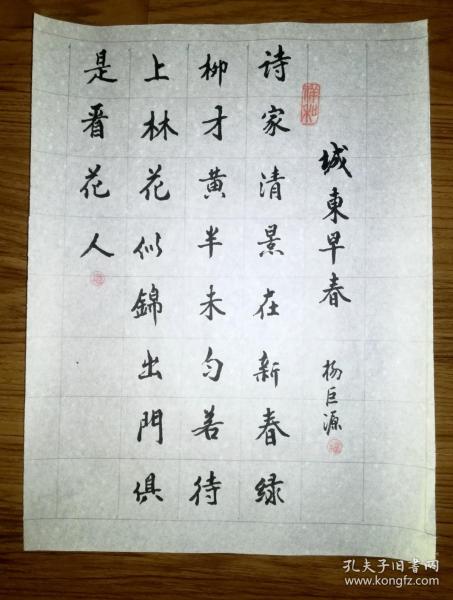 城東早春 楊巨源
诗家清景在新春绿
柳才黄半未匀若待
上林花似錦出門俱
是看花人
祥和
孔夫子旧书网
www.kongfz.com